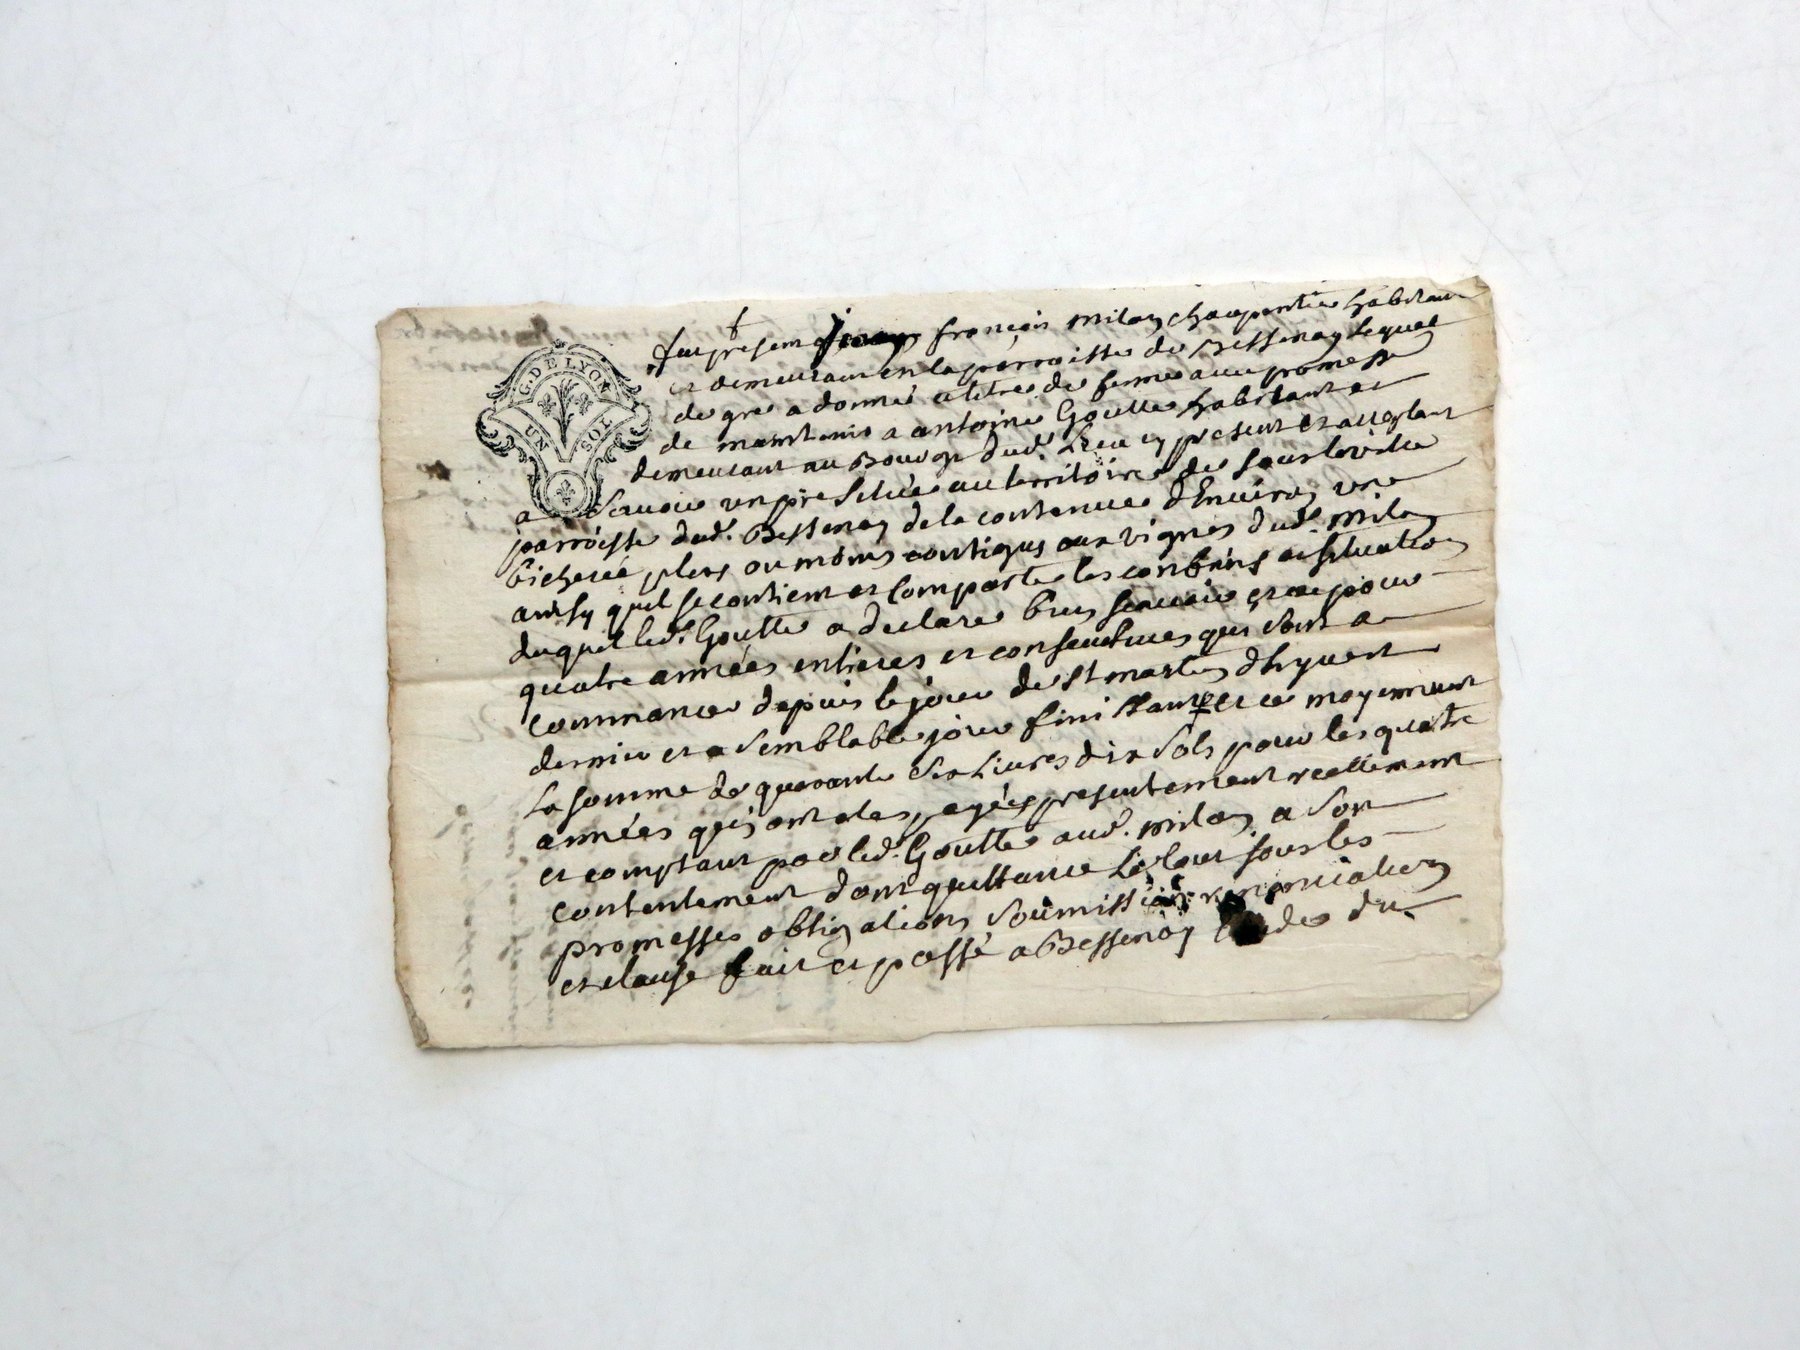 G. DE LYON
UN SOL
fut present françois milan charpentier habitant
et demeurant en la parroisse de Bessenay lequel
de gre a donné a titre de ferme avec promesse
de maintenir a antoine Goutte habitant et
demeurant au Bourg dud. lieu cy present et acceptant
a Scavoir un pre Situé au territoire de
parroisse dud. Bessenay de la contenue d'Environ une
bicherée plus ou moins contigus aux vignes dud. milan
ainsy quil se contient et comporte les confins et situation
duquel led. Goutte a declaré bien scavoir et ce pour
quatre années entieres et consecutives qui sont a
commancer depuis le jour de st martin d'hyvert
dernier et a Semblable jour finissant et ce moyennant
la somme de quarante Six Livres dix Sols pour les quatre
années qui ont etes payées presentement reellement
et comptant par led. Goutte aud. milan a Son
contentement dont quittance Le tout sous les
promesses obligations Soumissions renonciation
et clause fait et passé a Bessenay du